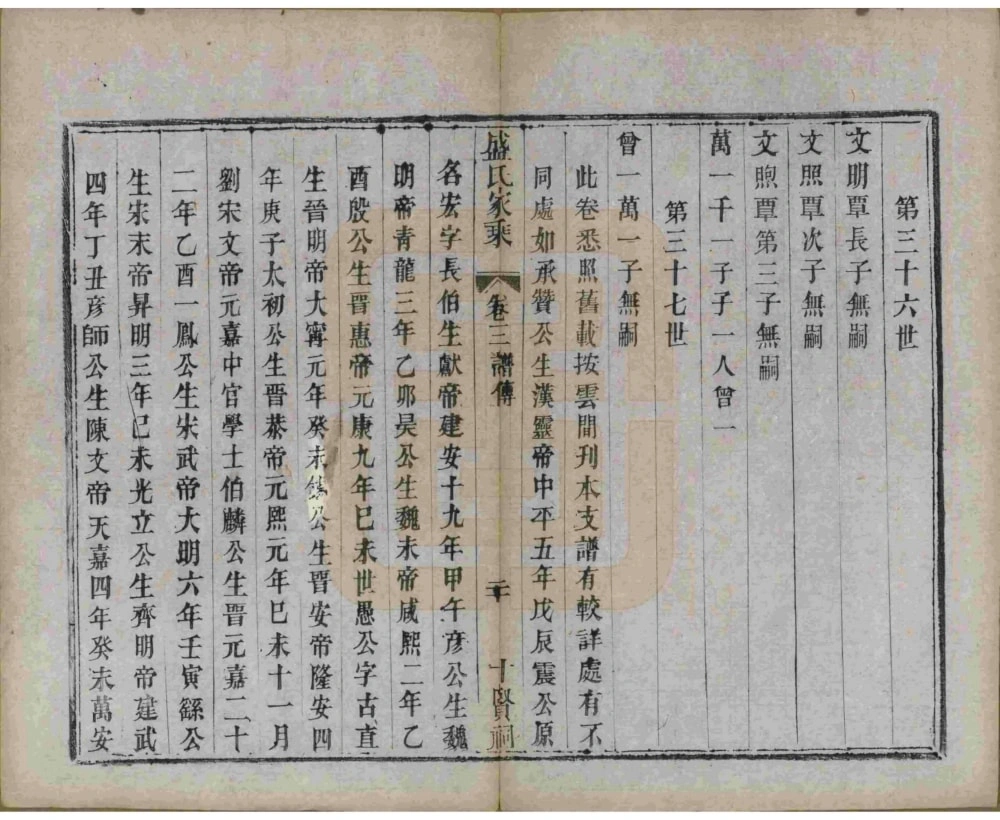 第三十六世
文明覃長子無嗣
文照覃次子無嗣
文煦覃第三子無嗣
萬一千一子子一人曾一
第三十七世
曾一萬一子無嗣
此卷悉照舊載按雲間刊本支譜有較詳處有不
同處如承贊公生漢靈帝中平五年戊辰震公原
盛氏家乘 卷三 譜傳 二十 十賢祠
名宏字長伯生獻帝建安十九年甲午彦公生魏
明帝青龍三年乙卯昊公生魏末帝咸熙二年乙
酉殷公生晋惠帝元康九年巳未世愚公字古直
生晉明帝大寧元年癸未 公生晋安帝隆安四
年庚子太初公生晋恭帝元熙元年巳未十一月
劉宋文帝元嘉中官學士伯麟公生晋元嘉二十
二年乙酉一鳳公生宋武帝大明六年壬寅繇公
生宋末帝昇明三年巳未光立公生齊明帝建武
四年丁丑彦師公生陳文帝天嘉四年癸未萬安